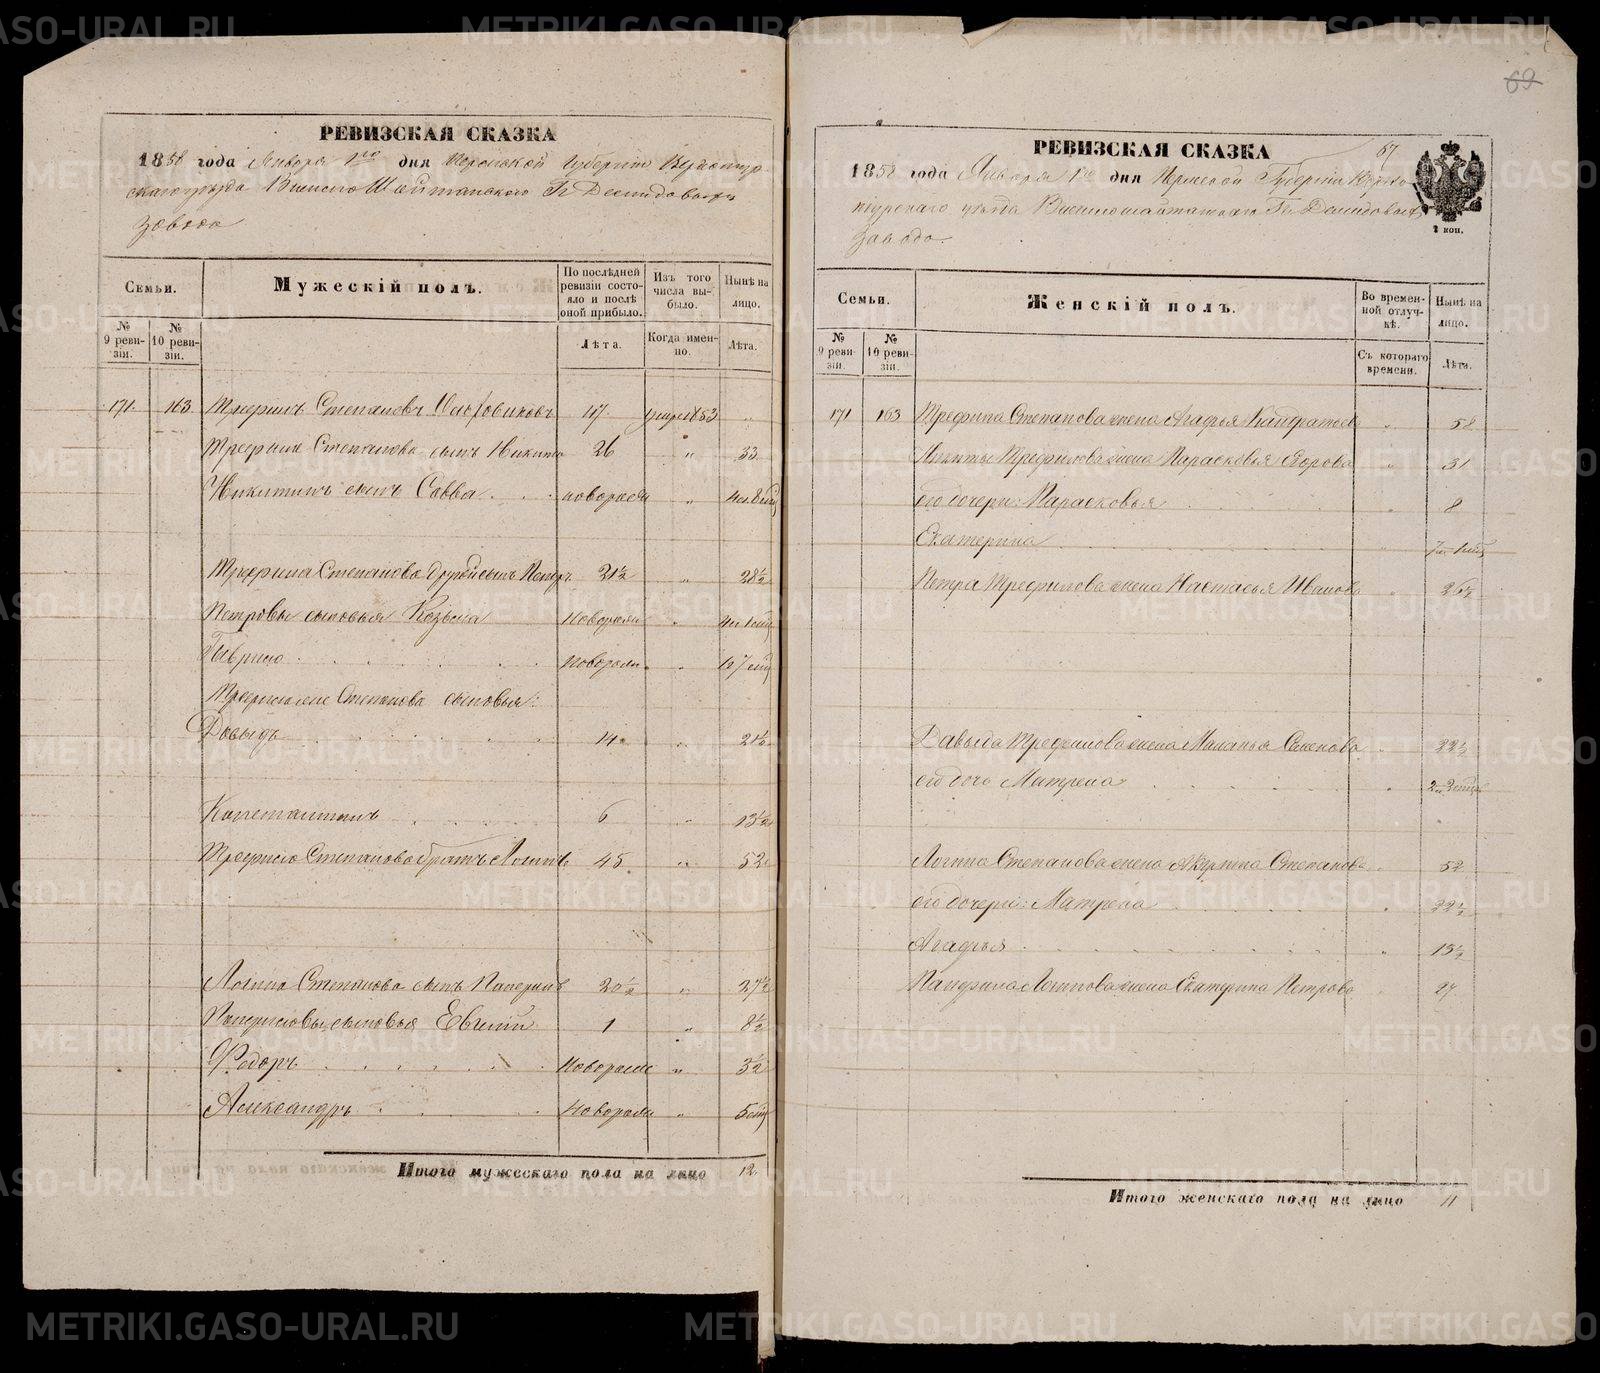 РЕВИЗСКАЯ СКАЗКА
1858 года Января 1го дня Пермской Губернии Верхотур-
скаго уезда Висимо Шайтанского Гг. Демидовыхъ
завода
Семьи.
Мужескій полъ.
По послѣдней ревизіи состояло и послѣ оной прибыло.
Изъ того числа выбыло.
Нынѣ на лицо.
№ 9 ревизіи.
№ 10 ревизіи.
Лѣта.
Когда именно.
Лѣта.
171. 163 Трефилъ Степановъ 47 умеръ 1853 "
Трефила Степанова сынъ Никита 26 " 33
Никитинъ сынъ Савва новорож " 4 л. 8 мц
Трефила Степанова другой сынъ Петръ 21½ " 28½
Петровы сыновья Козьма новорож " 4 л. 1 мц
Гаврило новорож. " 7 мц
Степанова сыновья:
Давыдъ 14 " 21½
Константинъ 6 " 13½
Трефила Степанова братъ Логинъ 45 " 52
Логина Степанова сынъ 20½ " 27½
сыновья Евгений 1 " 8½
Федоръ новорож " 3½
Александръ новорож " 5 мц
Итого мужескаго пола на лицо 12
69
67
РЕВИЗСКАЯ СКАЗКА
1858 года Января 1го дня Пермской Губернии Верхо-
турскаго уезда Висимошайтанскаго Гг. Демидовыхъ
завода.
2 коп.
Семьи.
Женскій полъ.
Во временной отлучкѣ.
Нынѣ на лицо.
№ 9 ревизіи.
№ 10 ревизіи.
Съ котораго времени.
Лѣта.
171 163 Трефила Степанова жена Агафья " 58
Никиты Трефилова жена Парасковья " 31
его дочери: Парасковья " 8
Екатерина " 1 мц
Петра Трефилова жена Настасья Иванова " 26½
Давыда Трефилова жена Маланья Семенова " 22½
его дочь Матрена "
Логина Степанова жена Акулина Степанова " 52
его дочери: Матрена " 22½
Агафья " 15½
Панфила Логинова жена Екатерина Петрова " 27
Итого женскаго пола на лицо 11
METRIKI.GASO-URAL.RU